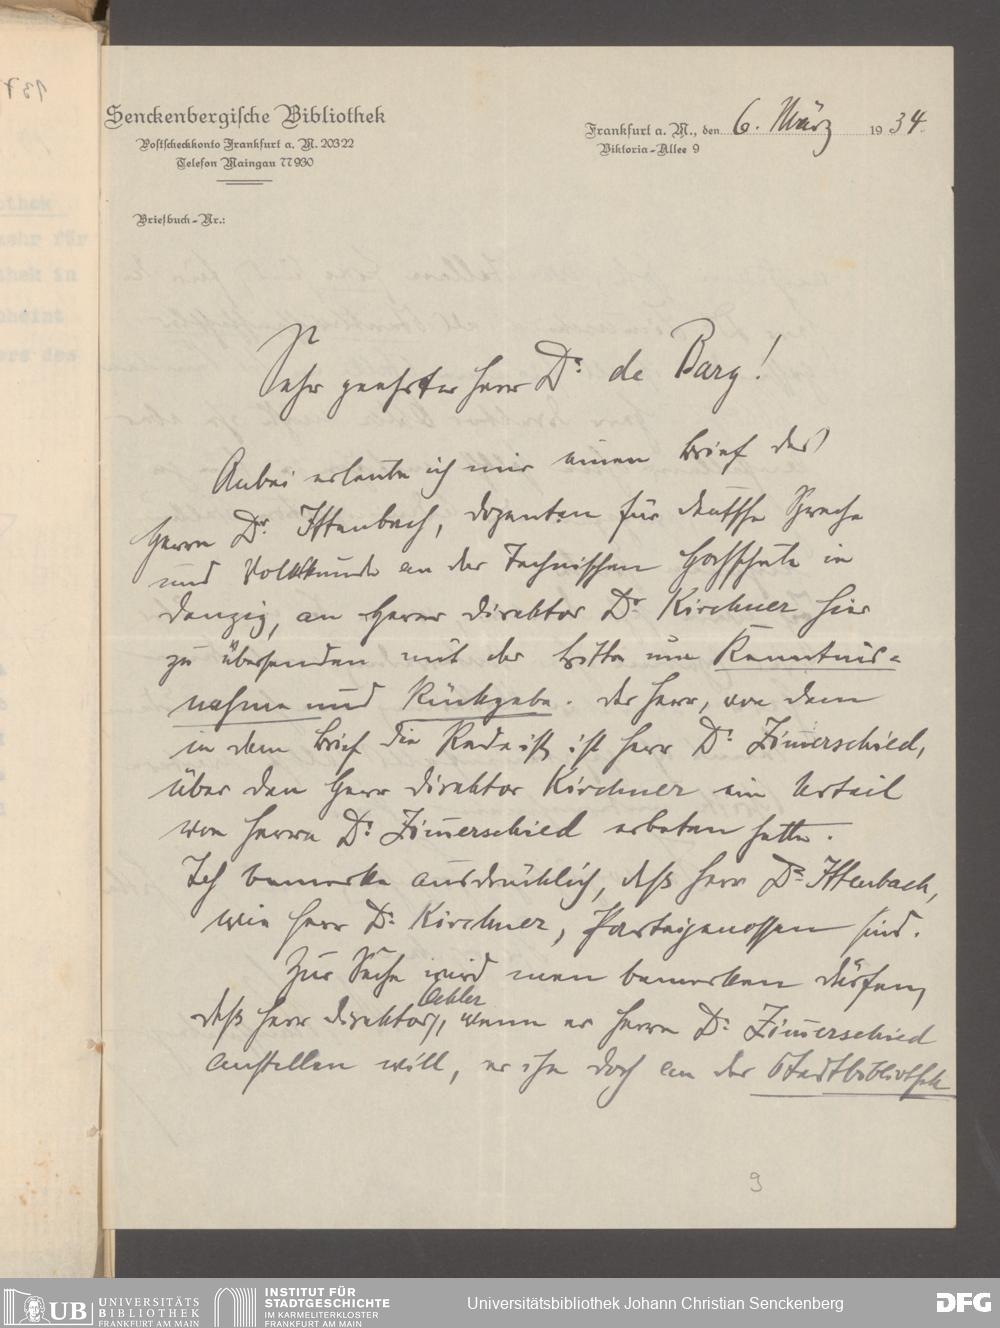 Senckenbergische Bibliothek
Postscheckkonto Frankfurt a. M. 20322
Telefon Maingau 77930
Frankfurt a. M., den 6. März 1934.
Viktoria-Allee 9
Briefbuch-Nr.:
Sehr geehrter Herr Dr. de Bary!
Anbei erlaube ich mir einen Brief des
Herrn Dr. Ittenbach, Dozenten für deutsche Sprache
und Volkskunde an der Technischen Hochschule in
Danzig, an Herrn Direktor Dr. Kirchner hier
zu übersenden mit der Bitte um Kenntnis-
nahme und Rückgabe. Der Herr, von dem
in dem Brief die Rede ist, ist Herr Dr. Zimerschied,
über den Herr Direktor Kirchner ein Urteil
von Herrn Dr. Zimerschied erbeten hatte.
Ich bemerke ausdrücklich, daß Herr Dr. Ittenbach,
wie Herr Dr. Kirchner, Parteigenossen sind.
Zur Sache wird man bemerken dürfen,
daß Herr Direktor Oehler, wenn er Herrn Dr. Zimerschied
anstellen will, er ihn doch an der Stadtbibliothek
9
UB UNIVERSITÄTS
BIBLIOTHEK
FRANKFURT AM MAIN
INSTITUT FÜR
STADTGESCHICHTE
IM KARMELITERKLOSTER
FRANKFURT AM MAIN
Universitätsbibliothek Johann Christian Senckenberg
DFG